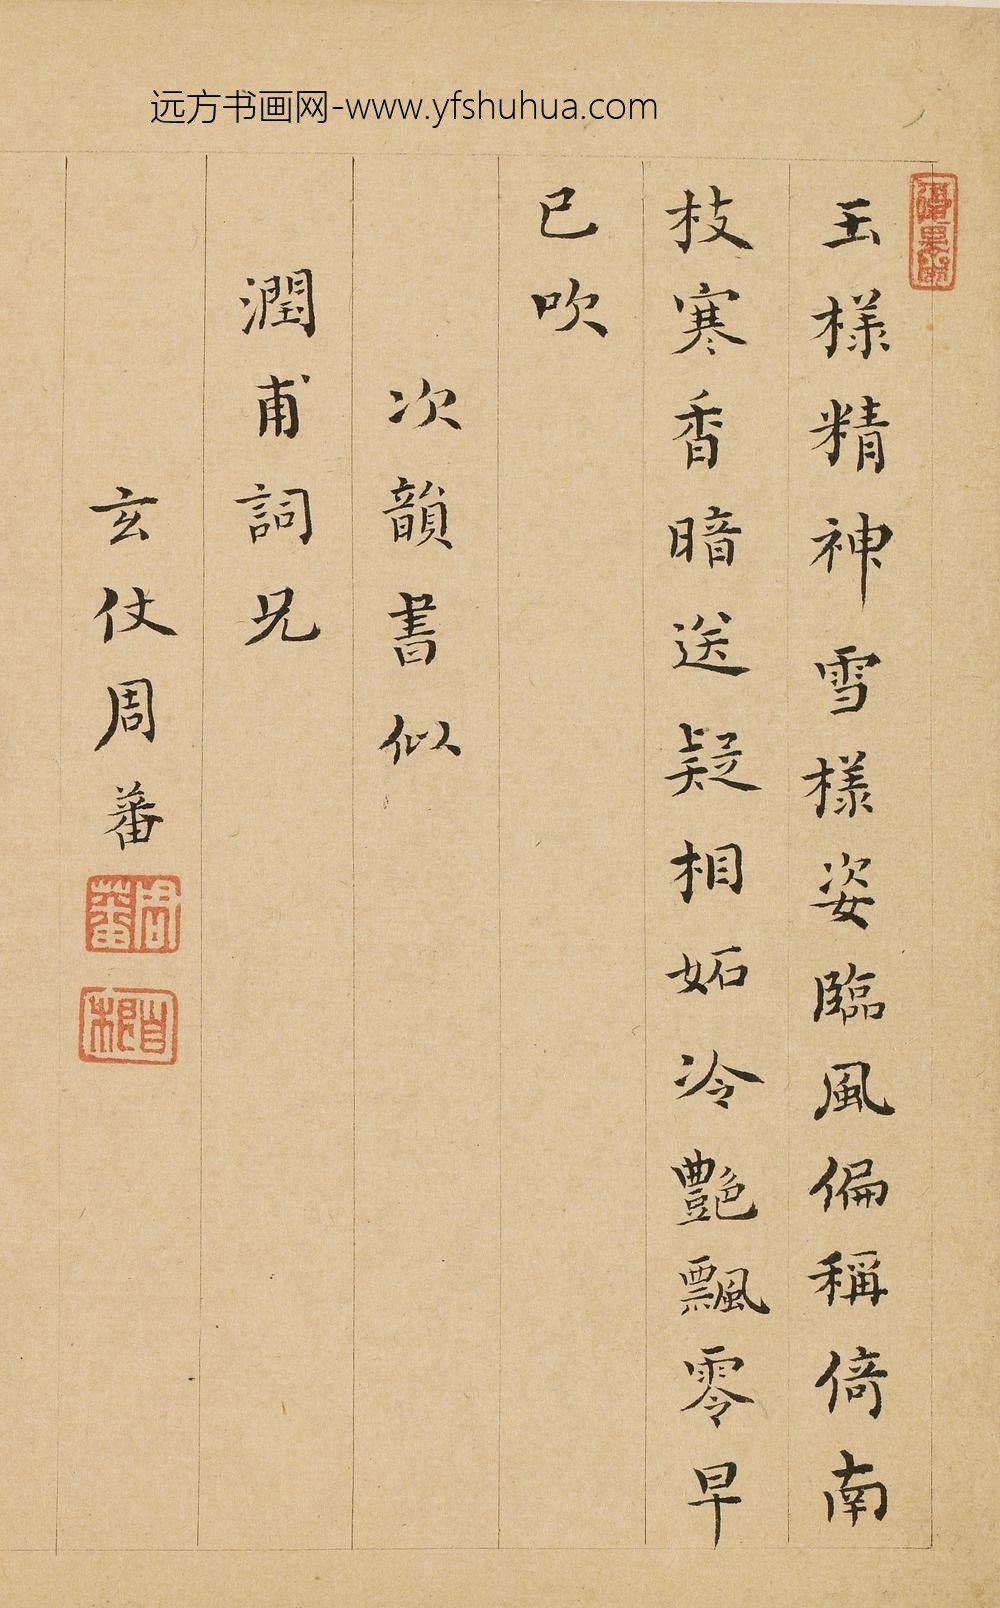 远方书画网-www.yfshuhua.com
玉樣精神雪樣姿臨風偏稱倚南
枝寒香暗送疑相妬冷艷飄零早
已吹
次韻書似
潤甫詞兄
玄仗周蕃
周蕃